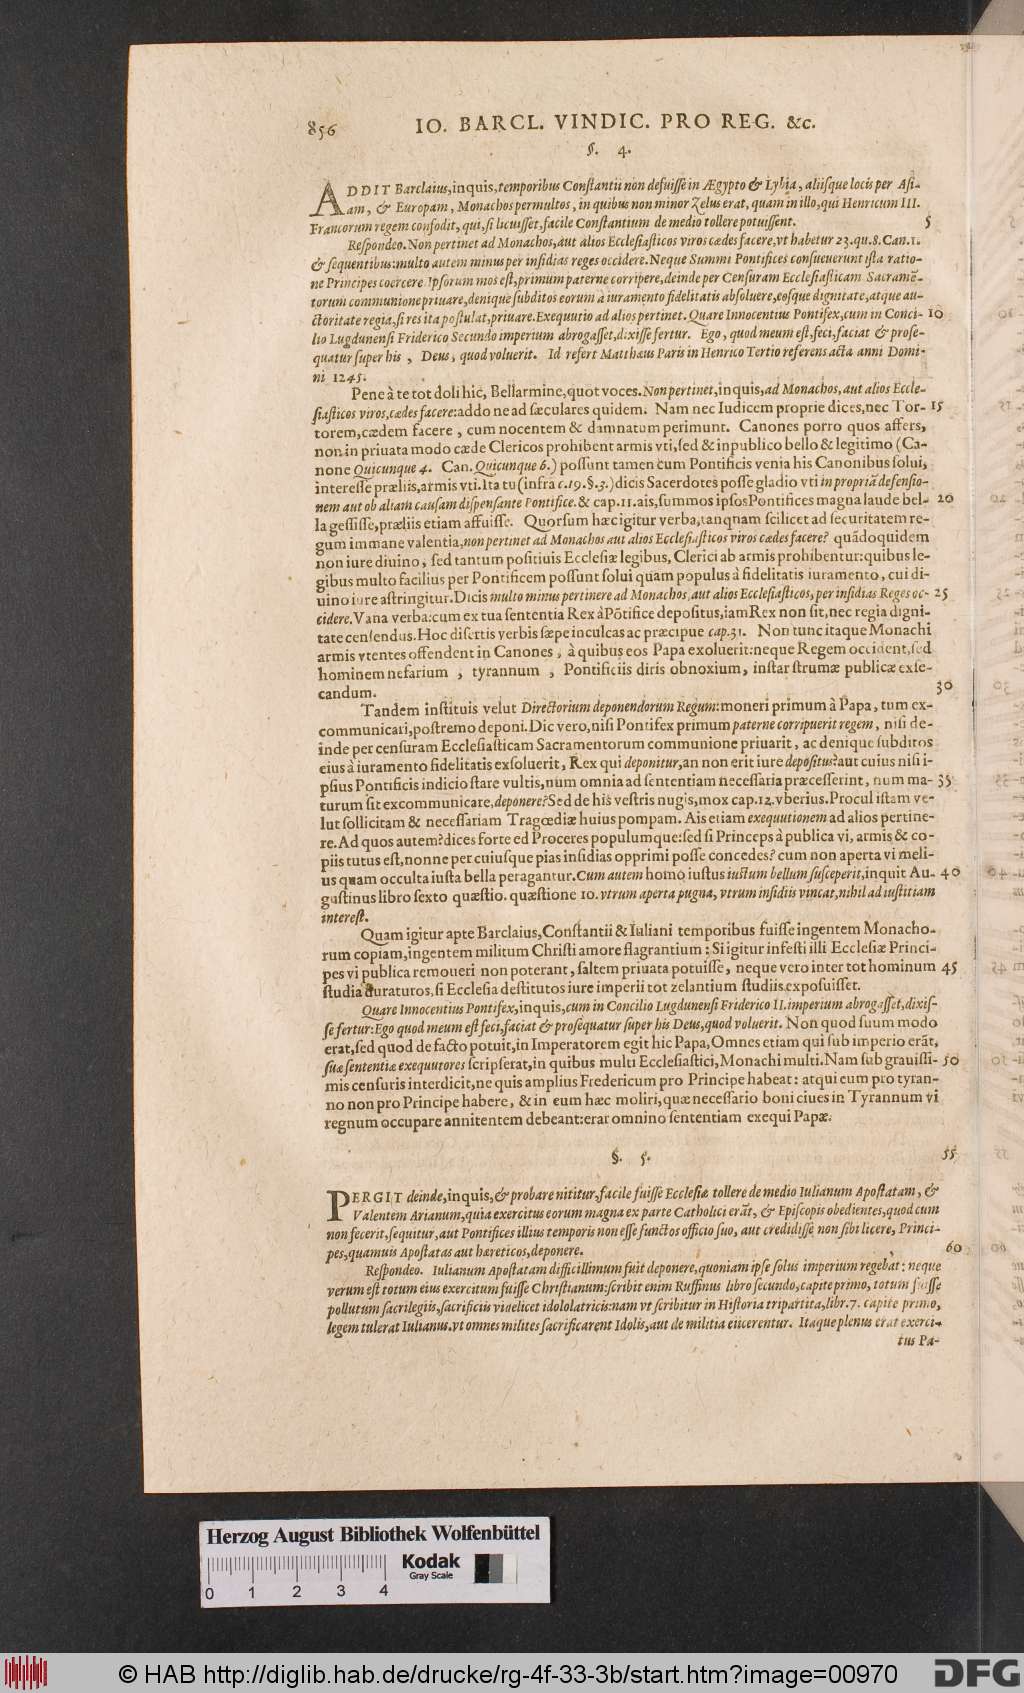 856 IO. BARCL. VINDIC. PRO REG. &c.
§. 4.
ADDIT Barclaius, inquis, temporibus Constantii non defuisse in Ægypto & Lybia, aliisque locis per Asi-
am, & Europam, Monachos permultos, in quibus non minor Zelus erat, quam in illo, qui Henricum III.
Francorum regem confodit, qui, si licuisset, facile Constantium de medio tollere potuissent. 5
Respondeo. Non pertinet ad Monachos, aut alios Ecclesiasticos viros cædes facere, vt habetur 23. qu. 8. Can. 1.
& sequentibus: multo autem minus per insidias reges occidere. Neque Summi Pontifices consueuerunt ista ratio-
ne Principes coercere. Ipsorum mos est, primum paterne corripere, deinde per Censuram Ecclesiasticam Sacramē-
torum communione priuare, denique subditos eorum à iuramento fidelitatis absoluere, eosque dignitate, atque au-
ctoritate regia, si res ita postulat, priuare. Exequutio ad alios pertinet. Quare Innocentius Pontifex, cum in Conci- 10
lio Lugdunensi Friderico Secundo imperium abrogasset, dixisse fertur. Ego, quod meum est, feci, faciat & prose-
quatur super his, Deus, quod voluerit. Id refert Matthæus Paris in Henrico Tertio referens acta anni Domi-
ni 1245.
Pene à te tot doli hic, Bellarmine, quot voces. Non pertinet, inquis, ad Monachos, aut alios Eccle-
siasticos viros, cædes facere: addo ne ad sæculares quidem. Nam nec Iudicem proprie dices, nec Tor- 15
torem, cædem facere, cum nocentem & damnatum perimunt. Canones porro quos affers,
non in priuata modo cæde Clericos prohibent armis vti, sed & in publico bello & legitimo (Ca-
none Quicunque 4. Can. Quicunque 6.) possunt tamen cum Pontificis venia his Canonibus solui,
interesse præliis, armis vti. Ita tu (infra c. 19. §. 3.) dicis Sacerdotes posse gladio vti in propriā defensio-
nem aut ob aliam causam dispensante Pontifice. & cap. 11. ais, summos ipsos Pontifices magna laude bel- 20
la gessisse, præliis etiam affuisse. Quorsum hæc igitur verba, tanquam scilicet ad securitatem re-
gum immane valentia, non pertinet ad Monachos aut alios Ecclesiasticos viros cædes facere? quādoquidem
non iure diuino, sed tantum positiuis Ecclesiæ legibus, Clerici ab armis prohibentur: quibus le-
gibus multo facilius per Pontificem possunt solui quam populus à fidelitatis iuramento, cui di-
uino iure astringitur. Dicis multo minus pertinere ad Monachos, aut alios Ecclesiasticos, per insidias Reges oc- 25
cidere. Vana verba: cum ex tua sententia Rex à Pōtifice depositus, iam Rex non sit, nec regia digni-
tate censendus. Hoc disertis verbis sæpe inculcas ac præcipue cap. 31. Non tunc itaque Monachi
armis vtentes offendent in Canones, à quibus eos Papa exoluerit: neque Regem occident, sed
hominem nefarium, tyrannum, Pontificiis diris obnoxium, instar strumæ publicæ exse-
candum. 30
Tandem instituis velut Directorium deponendorum Regum: moneri primum à Papa, tum ex-
communicari, postremo deponi. Dic vero, nisi Pontifex primum paterne corripuerit regem, nisi de-
inde per censuram Ecclesiasticam Sacramentorum communione priuarit, ac denique subditos
eius à iuramento fidelitatis exsoluerit, Rex qui deponitur, an non erit iure depositus? aut cuius nisi i-
psius Pontificis indicio stare vultis, num omnia ad sententiam necessaria præcesserint, num ma- 35
turum sit excommunicare, deponere? Sed de his vestris nugis, mox cap. 12. vberius. Procul istam ve-
lut sollicitam & necessariam Tragœdiæ huius pompam. Ais etiam exequutionem ad alios pertine-
re. Ad quos autem? dices forte ed Proceres populumque: sed si Princeps à publica vi, armis & co-
piis tutus est, nonne per cuiusque pias insidias opprimi posse concedes? cum non aperta vi meli-
us quam occulta iusta bella peragantur. Cum autem homo iustus iustum bellum susceperit, inquit Au- 40
gustinus libro sexto quæstio. quæstione 10. vtrum aperta pugna, vtrum insidiis vincat, nihil ad iustitiam
interest.
Quam igitur apte Barclaius, Constantii & Iuliani temporibus fuisse ingentem Monacho-
rum copiam, ingentem militum Christi amore flagrantium: Si igitur infesti illi Ecclesiæ Princi-
pes vi publica remoueri non poterant, saltem priuata potuisse, neque vero inter tot hominum 45
studia duraturos, si Ecclesia destitutos iure imperii tot zelantium studiis exposuisset.
Quare Innocentius Pontifex, inquis, cum in Concilio Lugdunensi Friderico II. imperium abrogasset, dixis-
se fertur: Ego quod meum est feci, faciat & prosequatur super his Deus, quod voluerit. Non quod suum modo
erat, sed quod de facto potuit, in Imperatorem egit hic Papa, Omnes etiam qui sub imperio erāt,
suæ sententiæ exequutores scripserat, in quibus multi Ecclesiastici, Monachi multi. Nam sub grauissi- 50
mis censuris interdicit, ne quis amplius Fredericum pro Principe habeat: atqui eum pro tyran-
no non pro Principe habere, & in eum hæc moliri, quæ necessario boni ciues in Tyrannum vi
regnum occupare annitentem debeant: erat omnino sententiam exequi Papæ.
§. 5. 55
PERGIT deinde, inquis, & probare nititur, facile fuisse Ecclesiæ tollere de medio Iulianum Apostatam, &
Valentem Arianum, quia exercitus eorum magna ex parte Catholici erāt, & Episcopis obedientes, quod cum
non fecerit, sequitur, aut Pontifices illius temporis non esse functos officio suo, aut credidisse non sibi licere, Princi-
pes, quamuis Apostatas aut hæreticos, deponere. 60
Respondeo. Iulianum Apostatam difficillimum fuit deponere, quoniam ipse solus imperium regebat: neque
verum est totum eius exercitum fuisse Christianum: scribit enim Ruffinus libro secundo, capite primo, totum fuisse
pollutum sacrilegiis, sacrificiis videlicet idololatricis: nam vt scribitur in Historia tripartita, libr. 7. capite primo,
legem tulerat Iulianus, vt omnes milites sacrificarent Idolis, aut de militia eiicerentur. Itaque plenus erat exerci-
tus Pa-
Herzog August Bibliothek Wolfenbüttel
Kodak
Gray Scale
0 1 2 3 4
© HAB http://diglib.hab.de/drucke/rg-4f-33-3b/start.htm?image=00970
DFG